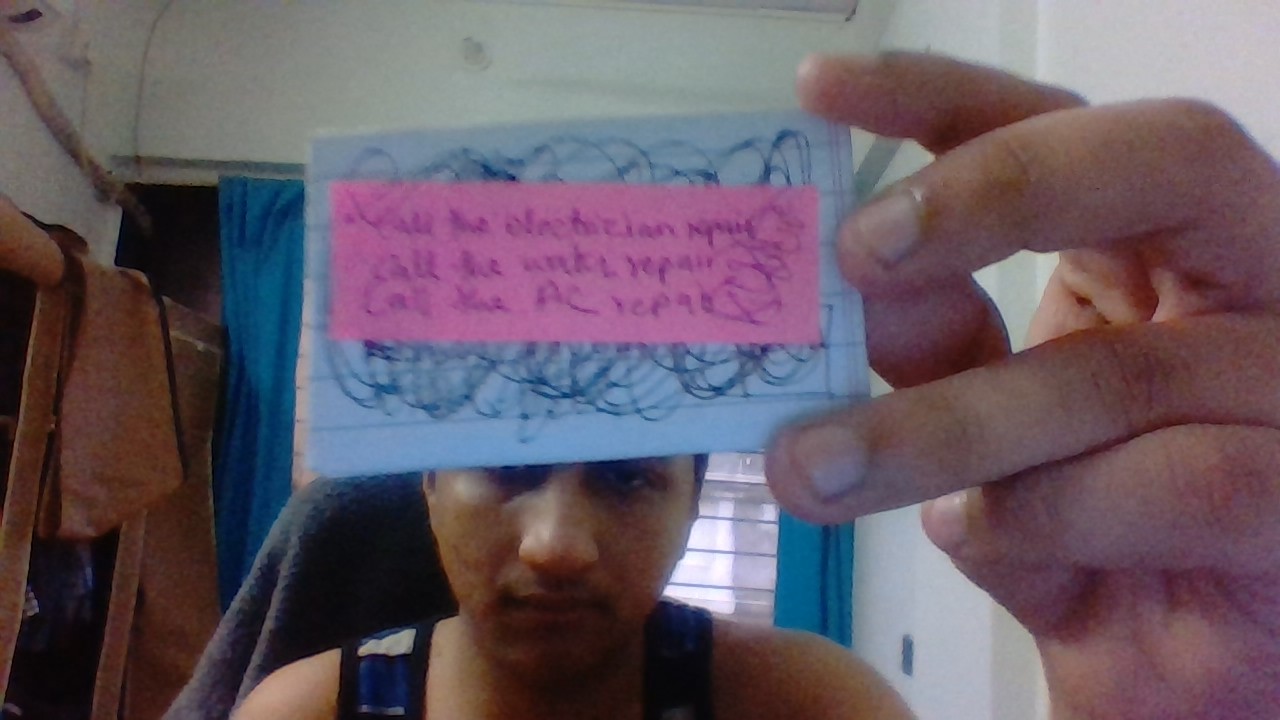 Call the electrician repair
Call the repair
Call the AC repair